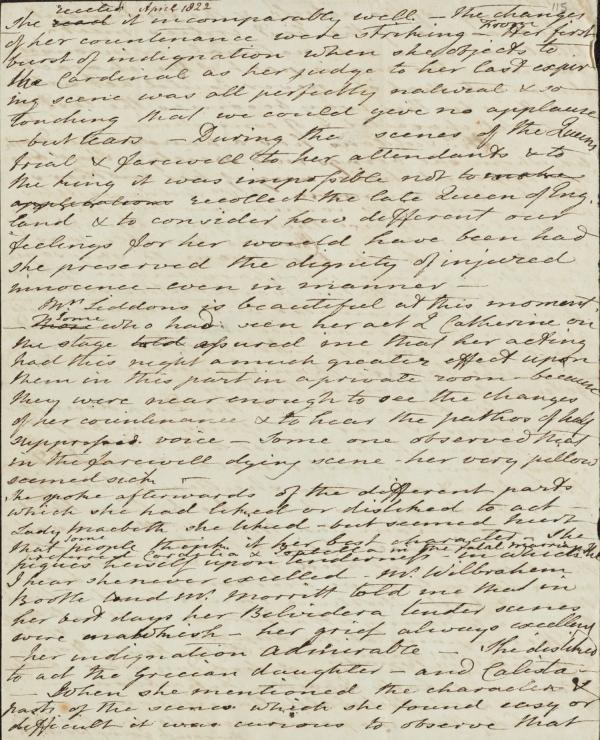 recited April 1822 115
She read it incomparably well. – The changes
of her countenance were striking – From Her first
burst of indignation when she objects to
the Cardinal as her judge to her last expir-
ing scene was all perfectly natural & so
touching that we could give no applause
– but tears – During the scenes of the Queens
trial & farewell to her attendants & to
the king it was impossible not to make
applications recollect the late Queen of Eng
land & to consider how different our
feelings for her would have been had
she preserved the dignity of injured
innocence – even in manner –
Mrs Siddons is beautiful at this moment.
– Some who had seen her act Q Catherine on
the stage told assured me that her acting
had this night a much greater effect upon
them in this part in a private room because
they were near enough to see the changes
of her countenance & to hear the pathos of half
suppressed voice – Some one observed that
in the farewell dying scene – her very pillow
seemed sick –
She spoke afterwards of the different parts
which she had liked or disliked to act –
Lady Macbeth she liked – but seemed hurt
that some people think it her best character. She
preferred Cordelia & in the fatal marriage She
piques herself upon tenderness in which
I hear she never excelled – Mr. Wilbraham
Bootle and Mr. Morritt told me that in
her best days her Belvidera tender scenes
were mawkish – her grief always excelling
– her indignation admirable – She disliked
to act the Grecian daughter – and Calista –
– When she mentioned the characters &
parts of the scenes which she found easy or
difficult it was curious to observe that